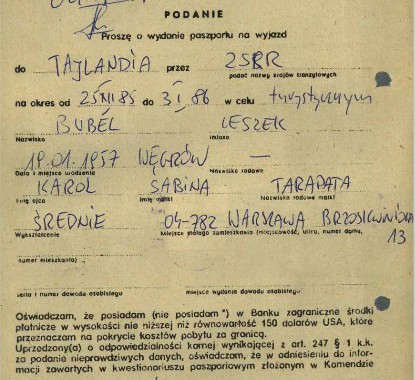 PODANIE
Proszę o wydanie paszportu na wyjazd
do TAJLANDIA przez ZSRR
podać nazwy krajów tranzytowych
na okres od 25 XII 85 do 3 I 86 w celu turystycznym
BUBEL LESZEK
Nazwisko Imiona
19.01.1957 WĘGRÓW —
Data i miejsce urodzenia Nazwisko rodowe
KAROL SABINA TARAPATA
Imię ojca Imię matki Nazwisko rodowe matki
ŚREDNIE 04-782 WARSZAWA
Wykształcenie Miejsce stałego zamieszkania (miejscowość, ulica, numer domu, 13
numer mieszkania)
seria i numer dowodu osobistego miejsce wydania dowodu osobistego
Oświadczam, że posiadam (nie posiadam *) w Banku zagraniczne środki
płatnicze w wysokości nie niższej niż równowartość 150 dolarów USA, które
przeznaczam na pokrycie kosztów pobytu za granicą.
Uprzedzony(a) o odpowiedzialności karnej wynikającej z art. 247 § 1 k.k.
za podanie nieprawdziwych danych, oświadczam, że w odniesieniu do infor-
macji zawartych w kwestionariuszu paszportowym złożonym w Komendzie